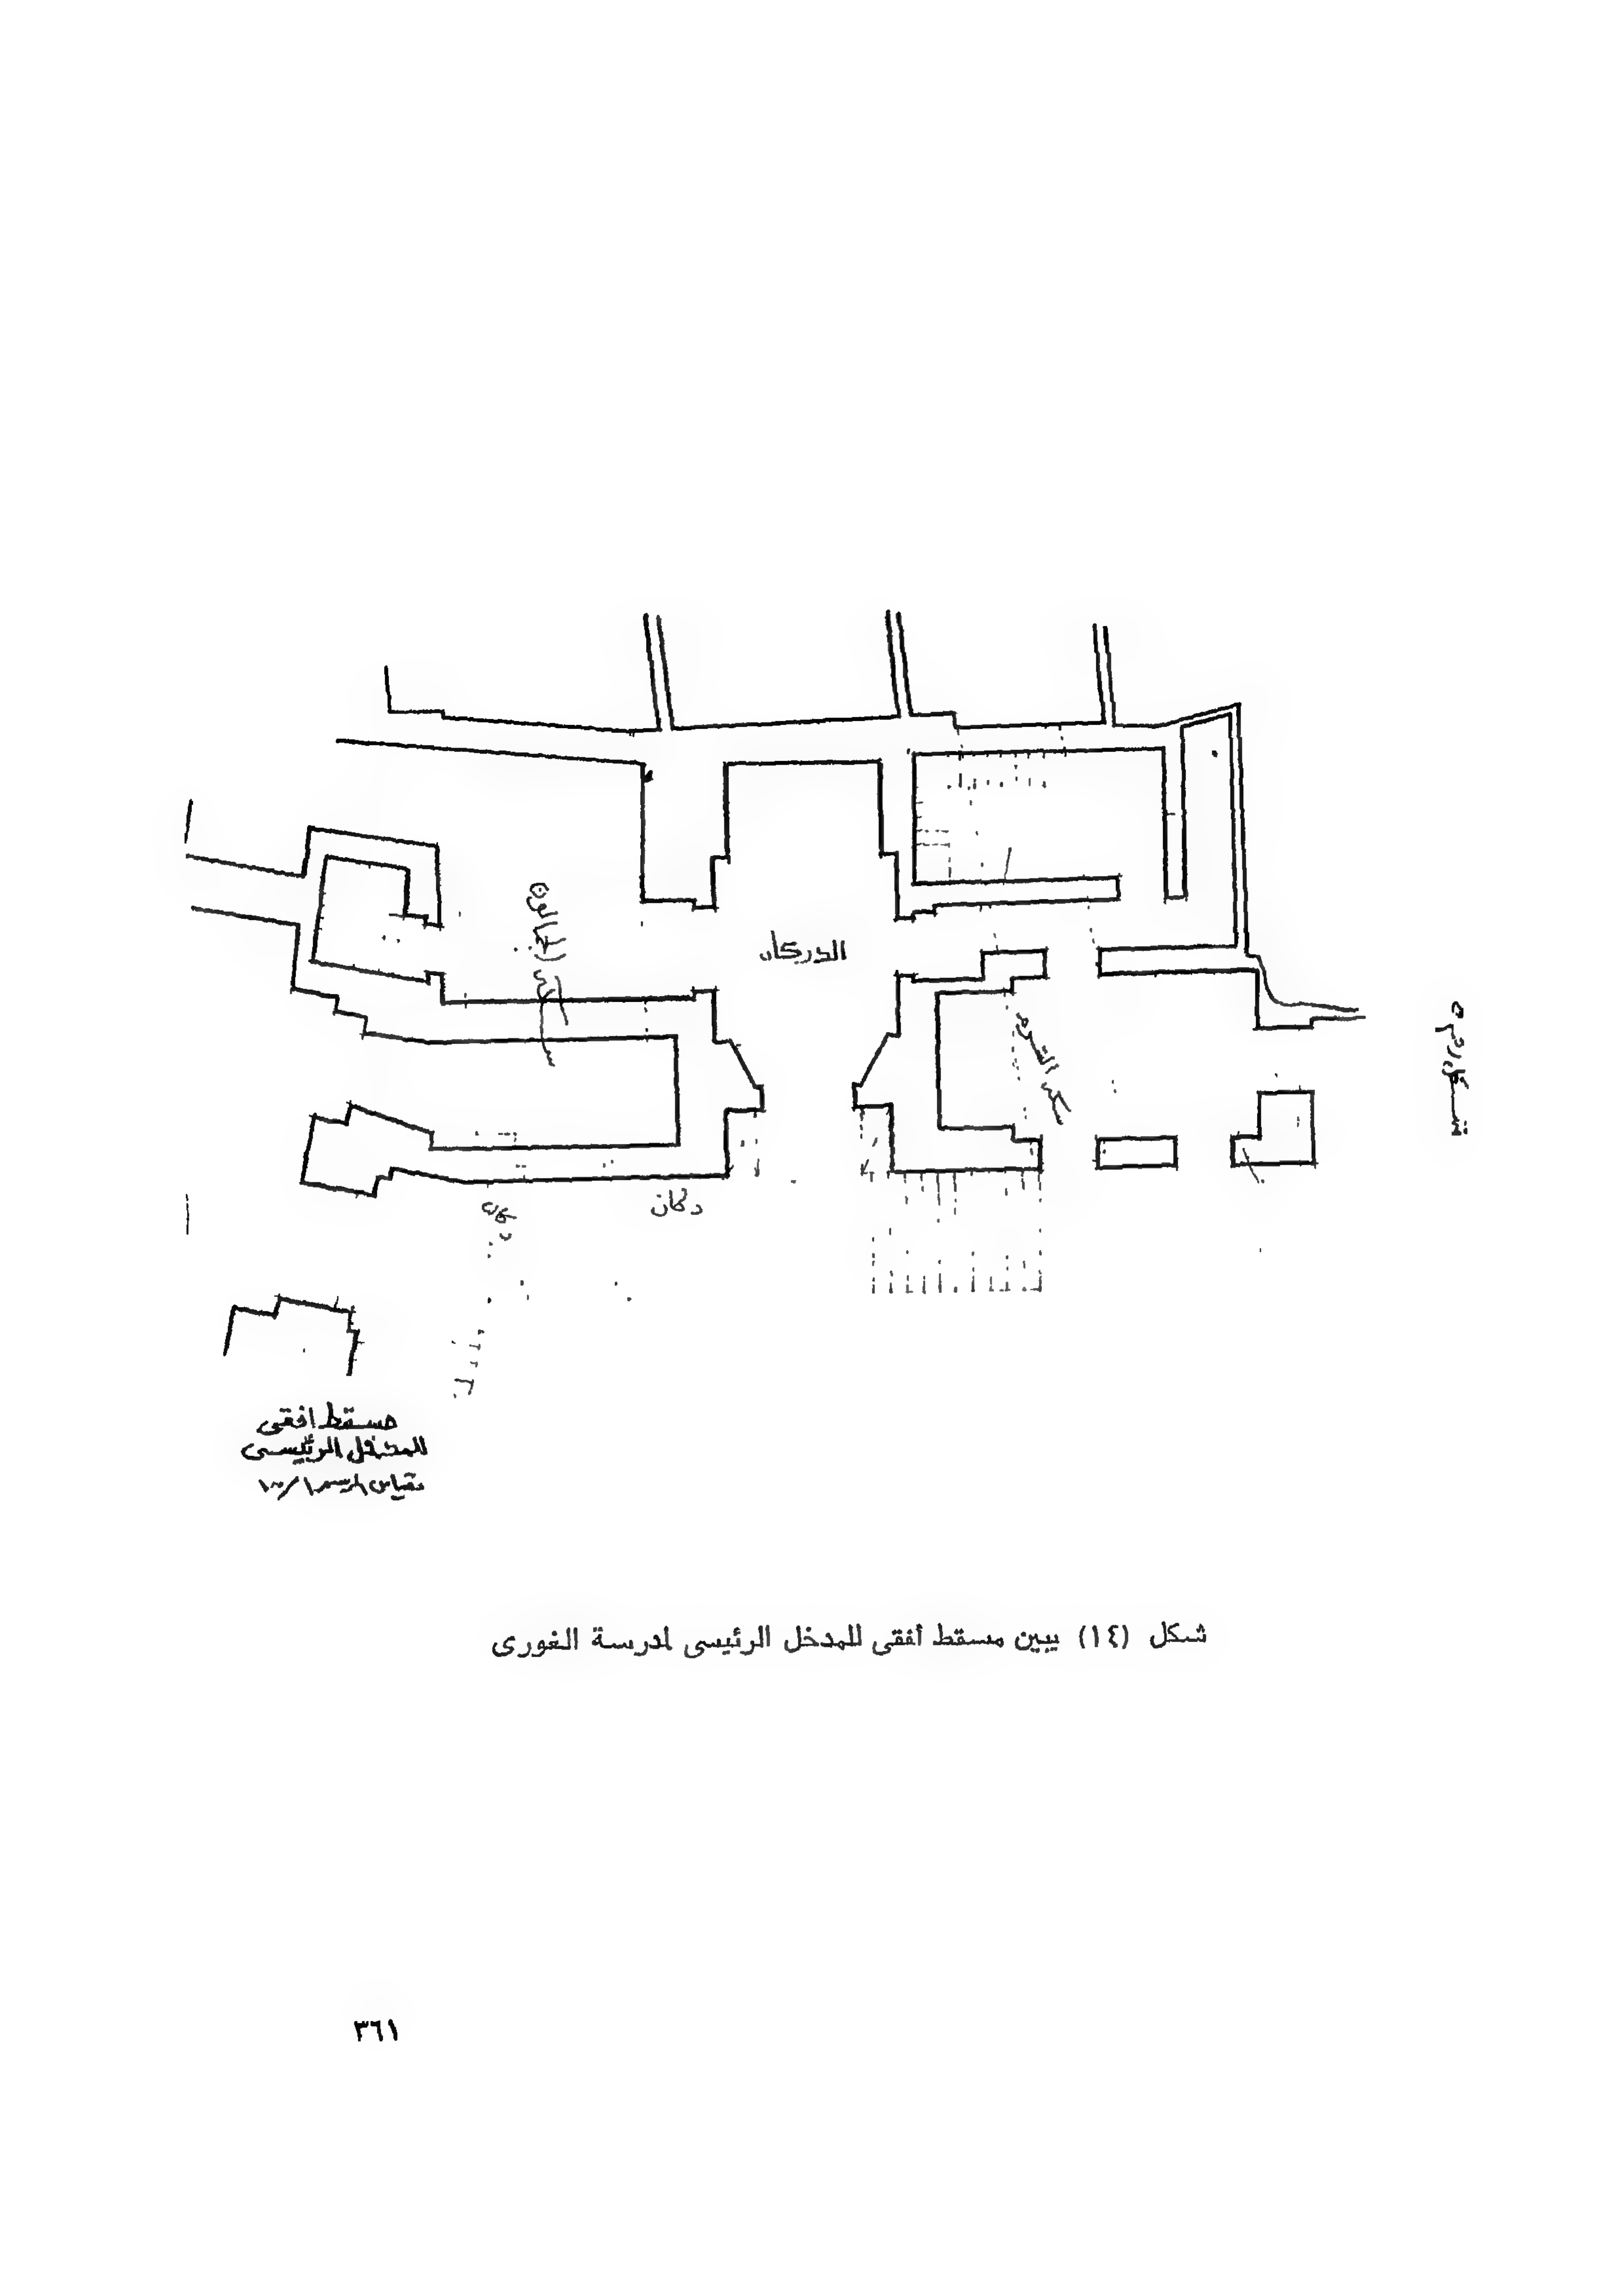 الدركاه
دكان
دكان
مسقط افقى
للمدخل الرئيسى
مقياس الرسم ١/١٠٠
شكل (١٤) يبين مسقط أفقى للمدخل الرئيسى لمدرسة الغورى
٣٦١